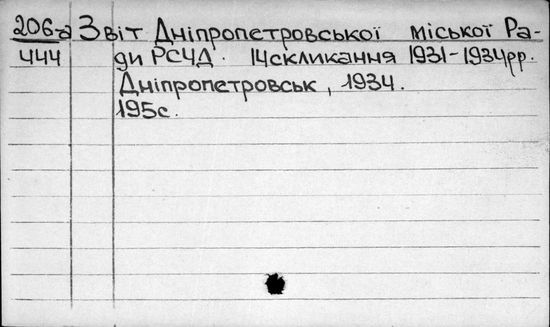 206-а Звіт Дніпропетровської міської Ра-
444 ди РСЧД. 14 скликання 1931-1934рр.
Дніпропетровськ, 1934.
195с.